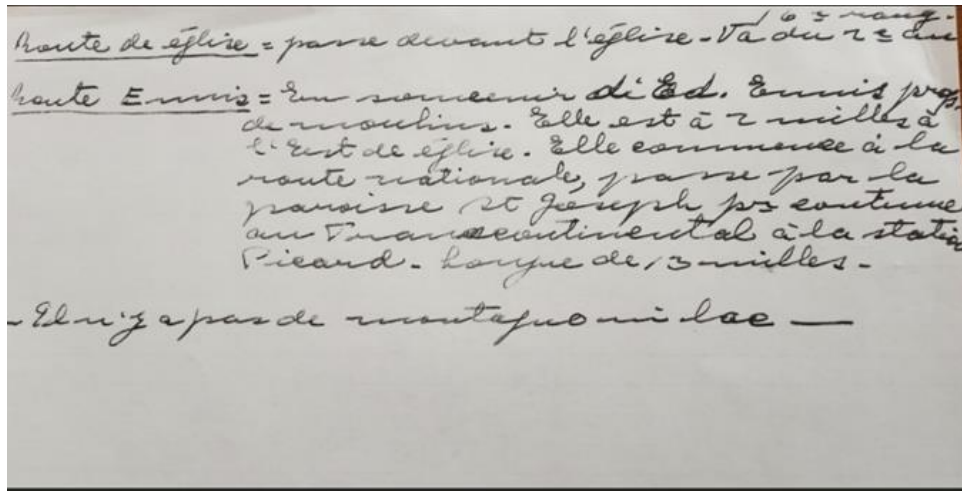 6e rang.
Route de église = passe devant l'église - Va du 2e au
Route Ennis = En souvenir d'Ed. Ennis prop.
de moulins. Elle est à 2 milles à
l'Est de église. Elle commence à la
route nationale, passe par la
paroisse St Joseph ps continue
au Transcontinental à la station
Picard - Longue de 13 milles -
- Il n'y a pas de montagne ni lac -